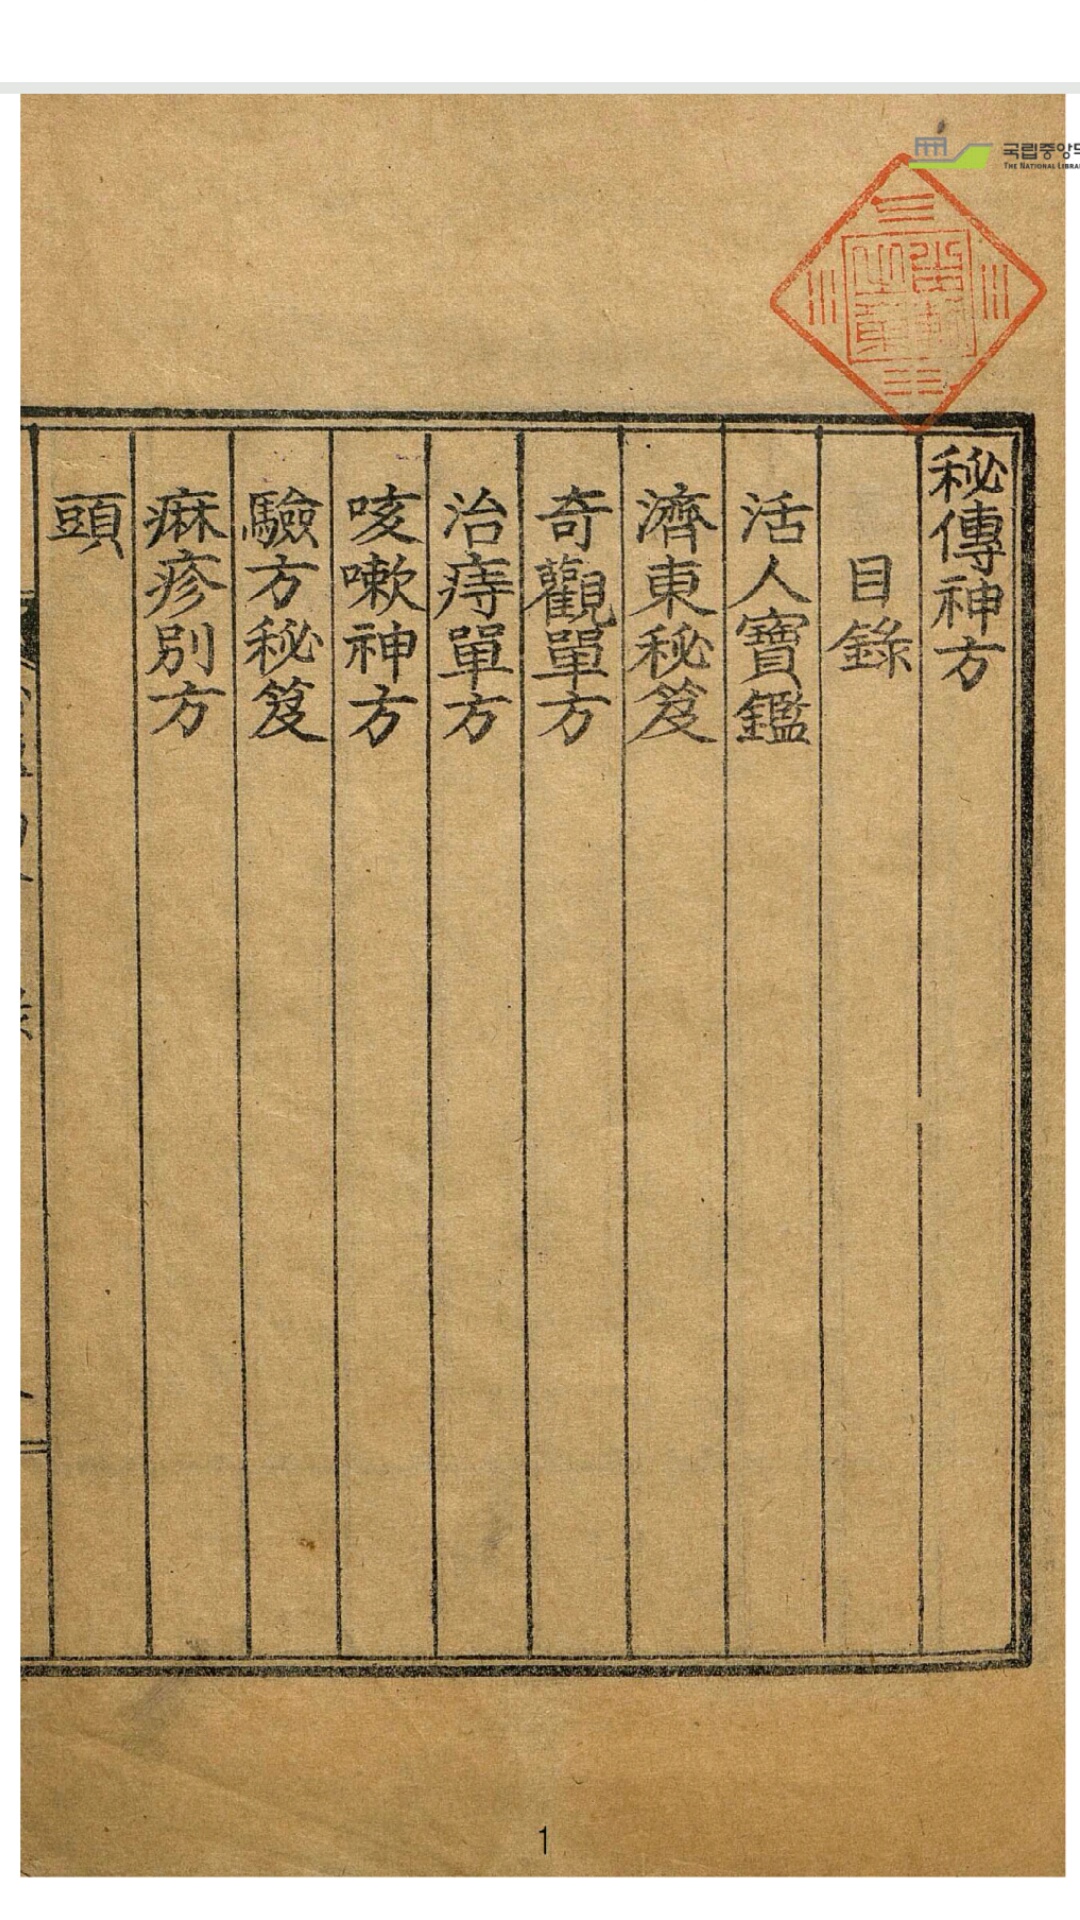 국립중앙도
THE NATIONAL LIBRA
秘傳神方
目錄
活人寶鑑
濟東秘笈
奇觀單方
治痔單方
咳嗽神方
驗方秘笈
痳疹別方
頭
1